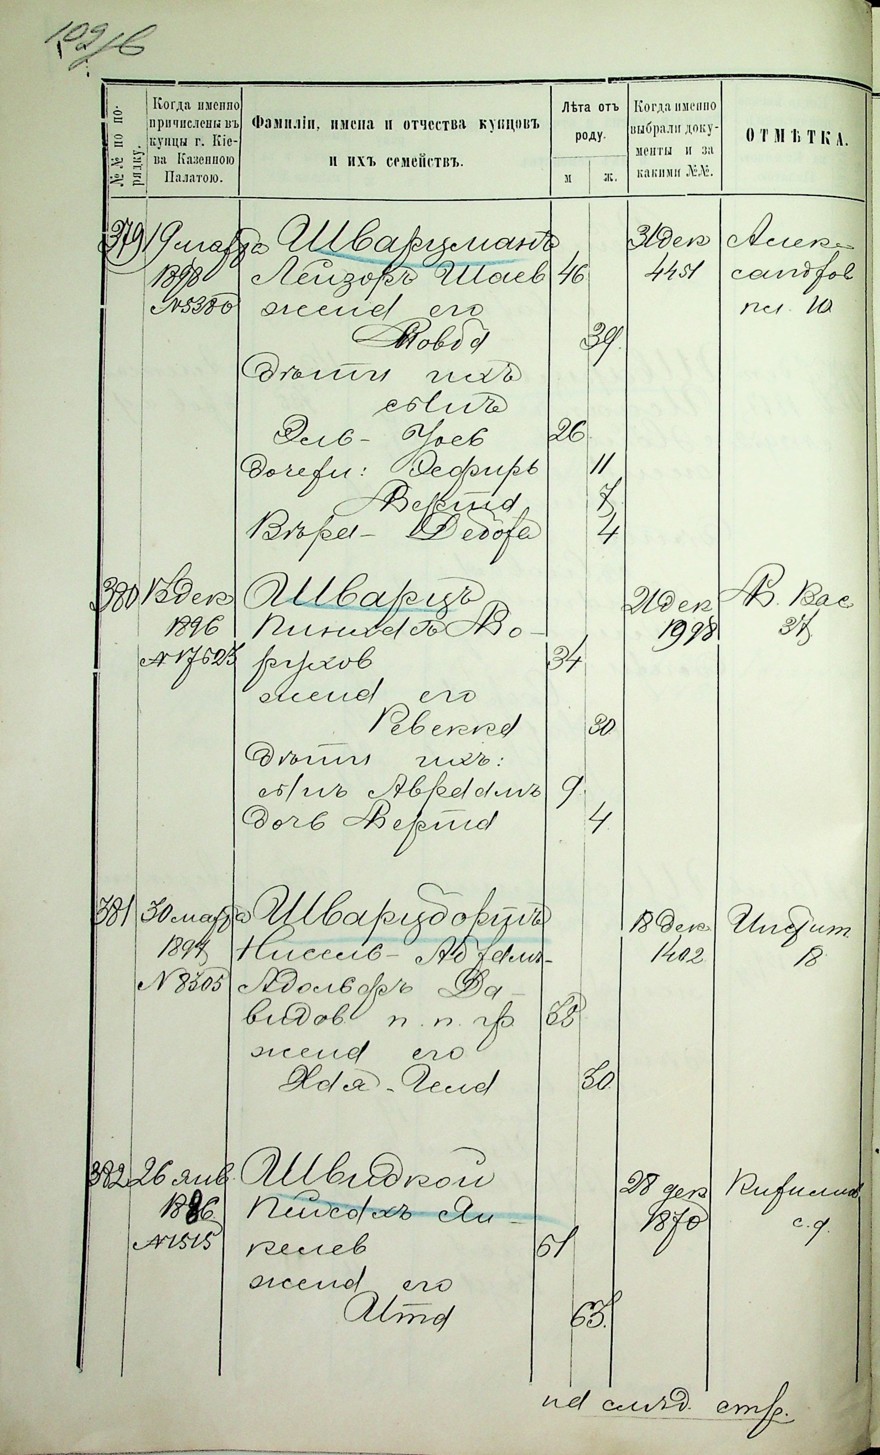 №№ по порядку.
Когда именно причислены въ купцы г. Кіева Казенною Палатою.
Фамиліи, имена и отчества купцовъ и ихъ семействъ.
Лѣта отъ роду.
м
ж.
Когда именно выбрали документы и за какими №№.
ОТМѢТКА.
379 19 марта Шварцманъ 31 дек Алек-
1898 Лейзоръ Шаев 46 4451 сандров
№5380 жена его пл. 10
39
дѣти ихъ
сынъ
26
дочери: Эсфирь 11
Берта 7
Вѣра - Дебора 4
380 дек Шварцъ 21 дек Б. Вас
1896 Пинхасъ Бо- 1998 37
рухов 34
жена его
Ревекка 30
дѣти ихъ:
сынъ Авраамъ 9
дочь Берта 4
381 30 марта Шварцбортъ 18 дек Инстит
1897 Ниссель - Абрамъ- 1402 18
№8305 Адольфъ Да-
видов п. п. гр 32
жена его
Хая - 30
382 26 янв Швидкой 28 дек Кирилов
1886 Пейсахъ Ян- 1870 с. д.
№1515 келев 61
жена его
Ита 63.
на слѣд. стр.